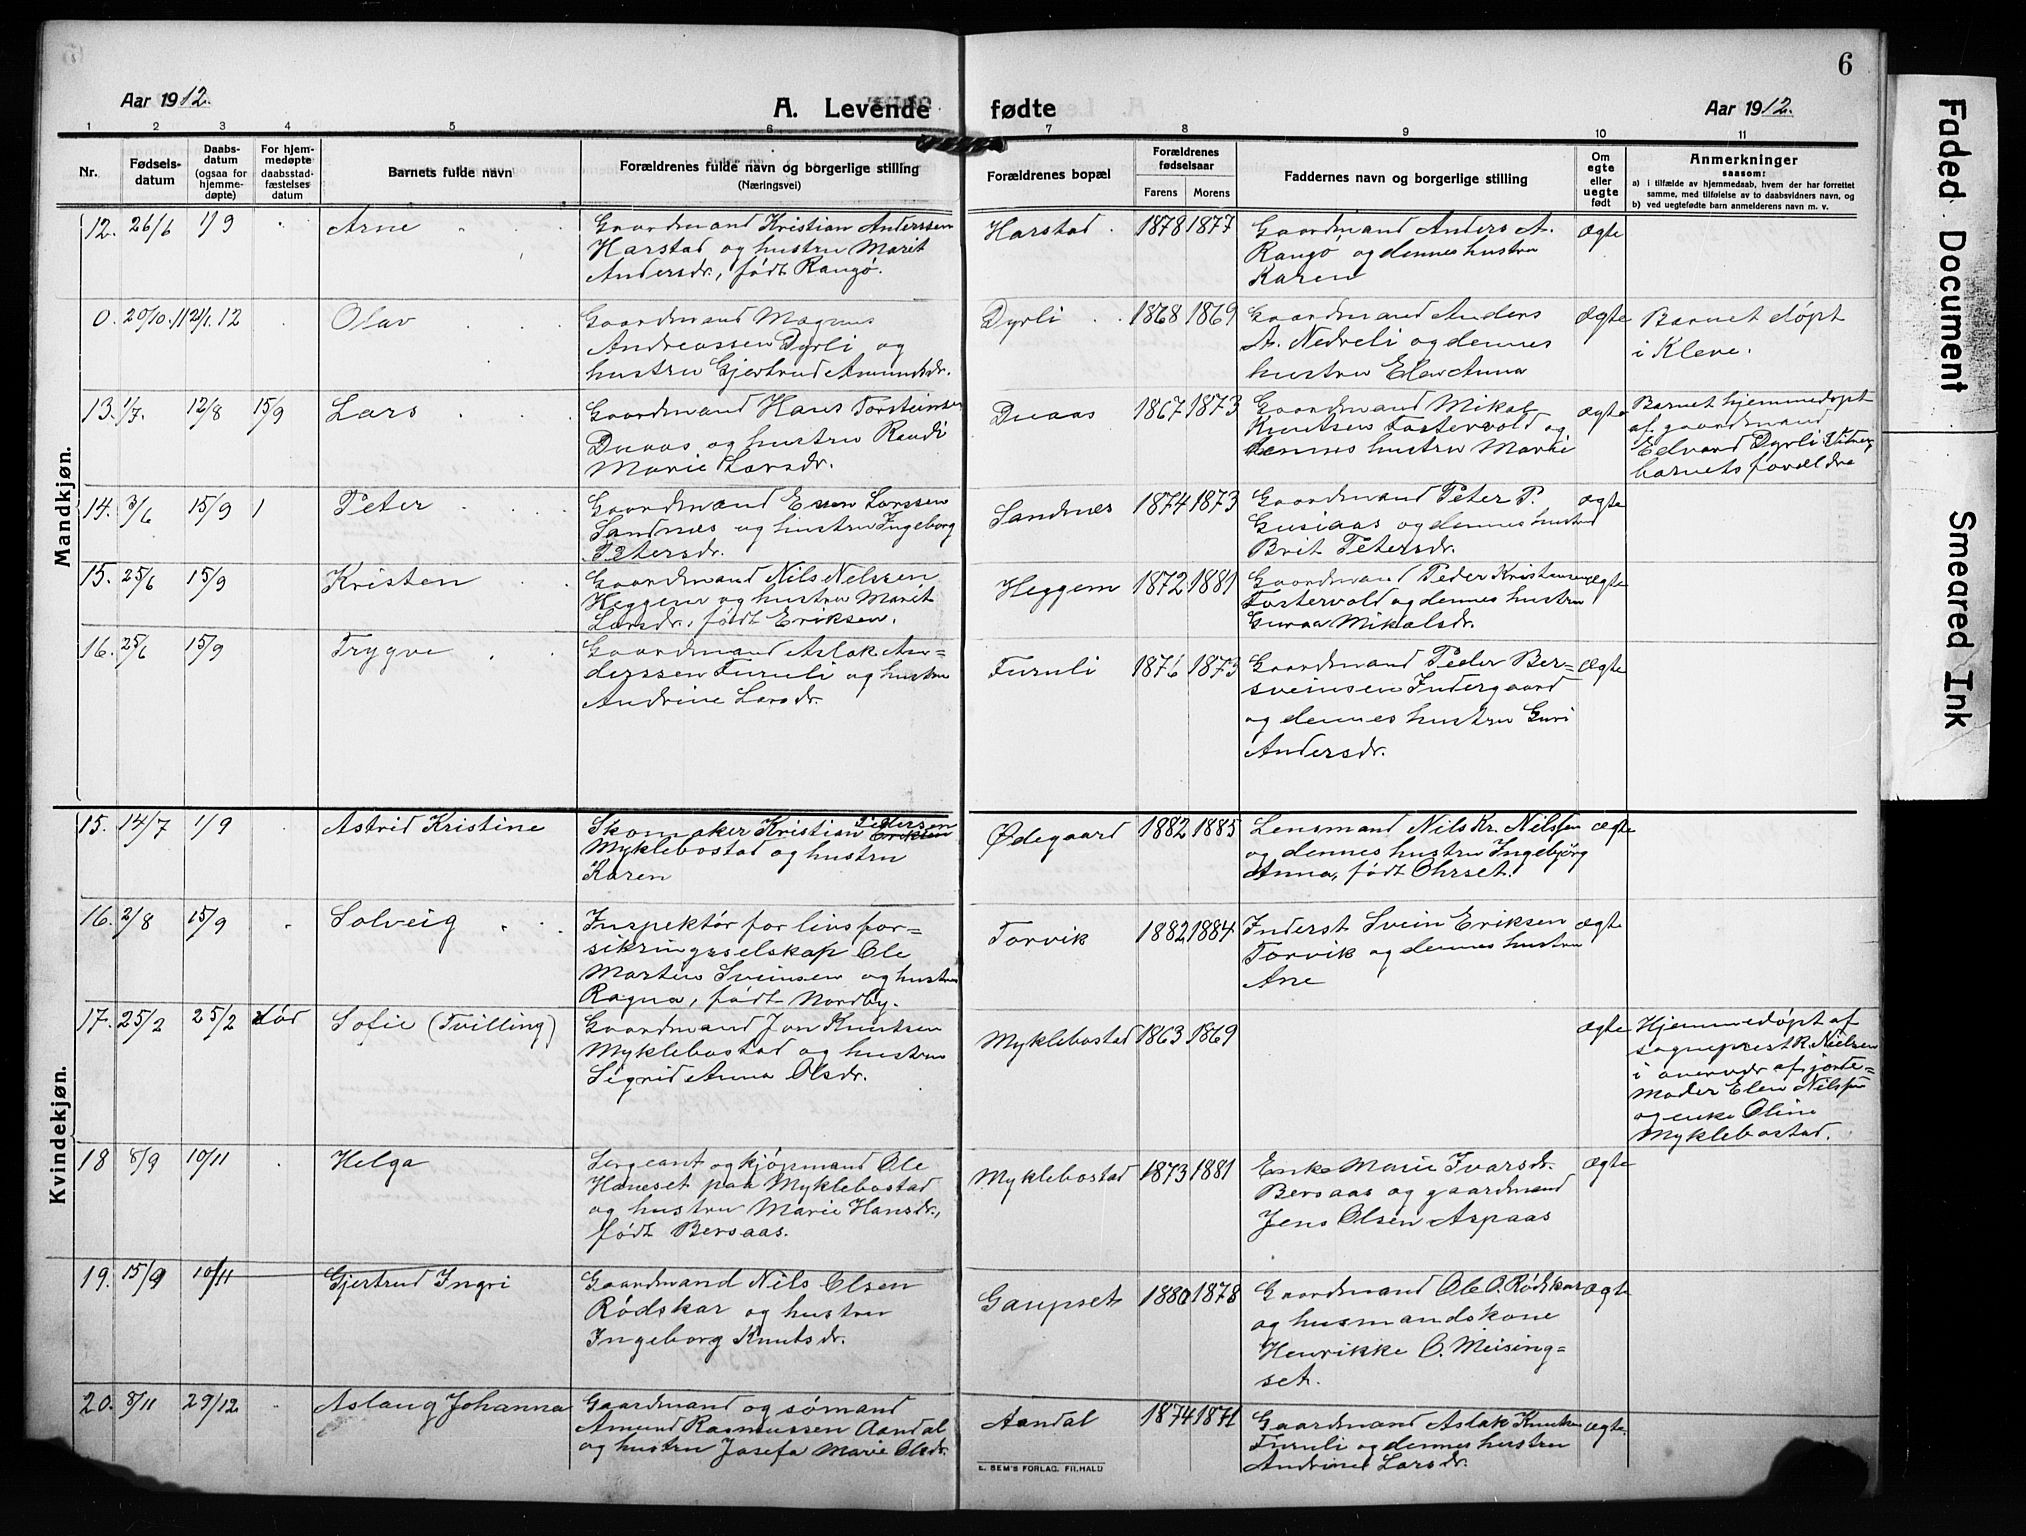 6
Aar 1912.
A. Levende fødte
Aar 1912.
1 2 3 4 5 6 7 8 9 10 11
Nr.
Fødsels-
datum
Daabs-
datum
(ogsaa for
hjemme-
døpte)
For hjem-
medøpte
daabsstad-
fæstelses
datum
Barnets fulde navn
Forældrenes fulde navn og borgerlige stilling
(Næringsvei)
Forældrenes bopæl
Forældrenes
fødselsaar
Farens Morens
Faddernes navn og borgerlige stilling
Om
egte
eller
uegte
født
Anmerkninger
saasom:
a) i tilfælde av hjemmedaab, hvem der har forrettet
samme, med tilføielse av to daabsvidners navn, og
b) ved uegtefødte barn anmelderens navn m. v.
Mandkjøn.
12. 26/6 1/9 Arne
Gaardmand Kristian Anderssen
Harstad og hustru Marit
Andersdr., født Rangø.
Harstad 1878 1877
Gaardmand Anders A.
Rangø og dennes hustru
Karen
ægte
0. 20/10.11 21/1.12 Olav
Gaardmand Magnus
Andreassen Dyrli og
hustru Gjertrud Amundsdr.
Dyrli 1868 1869
Gaardmand Anders
A. Nedreli og dennes
hustru Elen Anna
ægte
Barnet døpt
i Kleve.
13. 1/7. 12/8 15/9 Lars
Gaardmand Hans Torsteinsen
Duaas og hustru Randi
Marie Larsdr.
Duaas 1867 1873
Gaardmand Mikal
Knutsen Tostervold og
dennes hustru Marie
ægte
Barnet hjemmedøpt
af gaardmand
Edvard Dyrli.
barnets forældre
14. 3/6 15/9 1 Peter
Gaardmand Larssen
Sandnes og hustru Ingeborg
Petersdr.
Sandnes 1874 1873
Gaardmand Peter P.
Gusiaas og dennes hustru
Brit Petersdr.
ægte
15. 25/6 15/9 Kristen
Gaardmand Nils Nelssen
Heggem og hustru Marit
Larsdr., født Eriksen.
Heggem 1872 1881
Gaardmand Peder Kristensen
Tostervold og dennes hustru
Guraa Mikalsdr.
ægte
16. 25/6 15/9 Trygve
Gaardmand Aslak An-
derssen Furuli og hustru
Andrine Larsdr.
Furuli 1876 1873
Gaardmand Peder Ber-
sveinsen Indergaard
og dennes hustru Guri
Andersdr.
ægte
Kvindekjøn.
15. 14/7 1/9 Astrid Kristine
Skomaker Kristian Pedersen
Myklebostad og hustru
Karen
Ødegaard 1882 1885
Lensmand Nils Kr. Nilssen
og dennes hustru Ingebjørg
Anna, født Ohrset.
ægte
16. 2/8 15/9 Solveig
Inspektør for livsfor-
sikringsselskap Ole
Martin Sveinsen og hustru
Ragna, født Nordby.
Torvik 1882 1884
Inderst Svein Eriksen
Torvik og dennes hustru
Ane
ægte
17. 25/2 25/2 død Sofie (Tvilling)
Gaardmand Jon Knutsen
Myklebostad og hustru
Sigrid Anna Olsdr.
Myklebostad 1863 1869
ægte
Hjemmedøpt af
sogneprest R. Nielsen
i overvær af jorde-
moder Elen Nilssen
og enke Oline
Myklebostad.
18 8/9 10/11 Helga
Sergeant og kjøpmand Ole
Haneset paa Myklebostad
og hustru Marie Hansdr.,
født Bersaas.
Myklebostad 1873 1881
Enke Marie Ivarsdr.
Bersaas og gaardmand
Jens Olsen Aspaas
ægte
19. 15/9 10/11 Gjertrud Ingri
Gaardmand Nils Olsen
Rødskar og hustru
Ingeborg Knutsdr.
Gaupset 1880 1878
Gaardmand Ole O. Rødskar
og husmandskone
Henrikke O. Meising-
set.
ægte
20. 8/11 29/12 Aslaug Johanna
Gaardmand og sømand
Amund Rasmussen Aandal
og hustru Josefa Marie Olsdr.
Aandal 1874 1871
Gaardmand Aslak Knutsen
Furuli og dennes hustru
Andrine Larsdr.
ægte
E. SEM'S FORLAG. FR.HALD
Faded Document
Smeared Ink